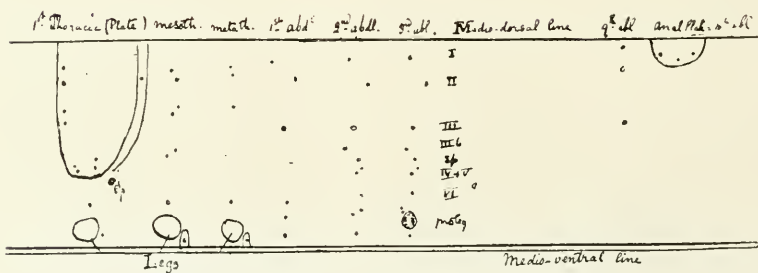 1st Thoracic (Plate) mesoth. metath. 1st abdl 2nd abdl. 5th abl. Medio-dorsal line 9th abl anal Plate = 10th abl
I
II
III
IIIb
Sp
IV+V
Sp
VI
proleg
Legs
Medio-ventral line